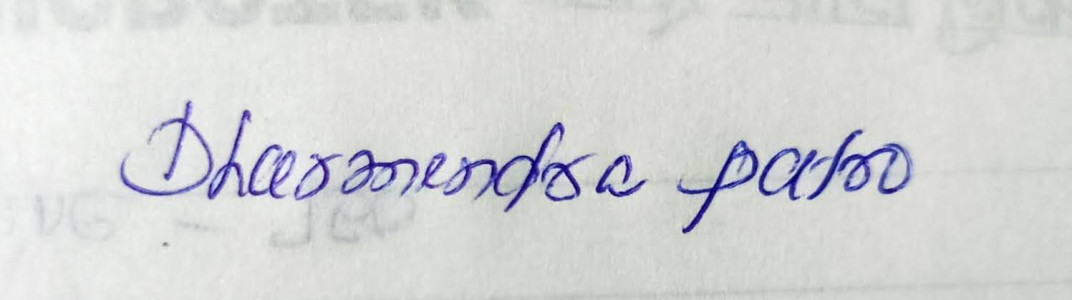 Dharmendra patro